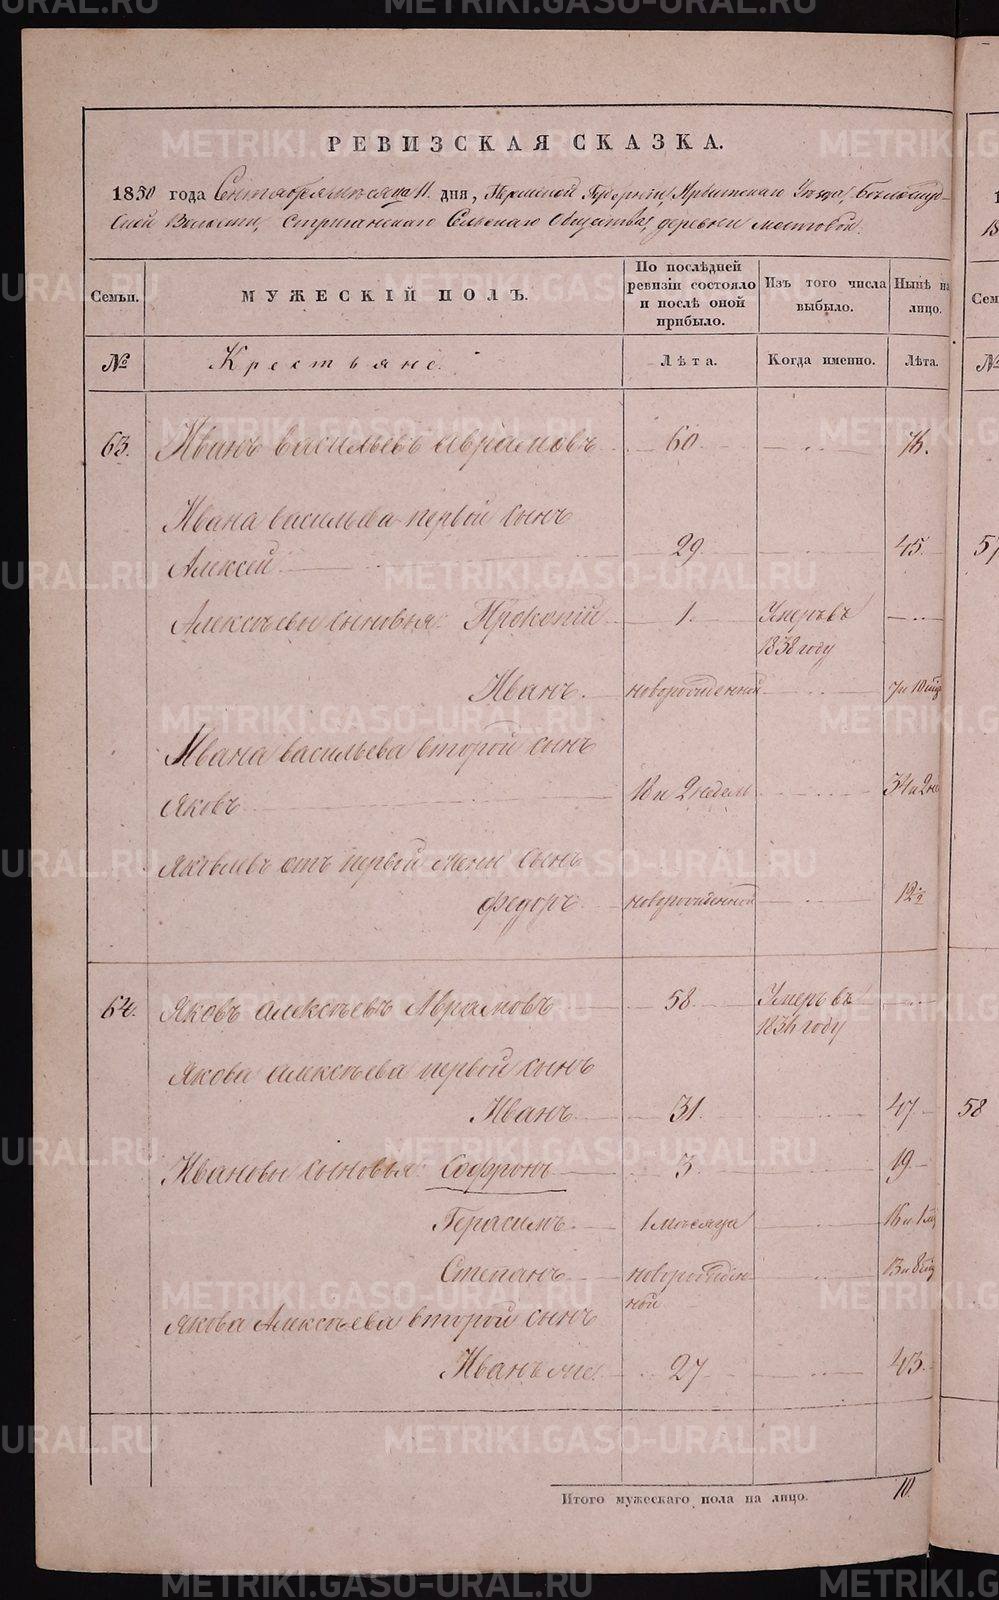 РЕВИЗСКАЯ СКАЗКА.
1850 года Сентября месяца 11. дня, Пермской Губернии, Ирбитскаго Уезда, Белослуд-
ской Волости, Стриганскаго Сельскаго Общества, деревни Мостовой.
Семьи. МУЖЕСКІЙ ПОЛЪ. По послѣдней ревизіи состояло и послѣ оной прибыло. Изъ того числа выбыло. Нынѣ на лицо.
№ Крестьяне. Лѣта. Когда именно. Лѣта.
63. Иванъ Васильевъ Аврамовъ 60. 76.
Ивана Васильева первой сынъ
Алексей 29 45. 57
Алексѣевы сыновья: Прокопій 1. Умеръ въ
1838 году
Иванъ. новорожденный 7 и 10 мц
Ивана Васильева второй сынъ
Яковъ 18 и 2 недел 34 и 2 не
Яковлевъ отъ первой жены сынъ
Федоръ новорожденной 12½
64. Яковъ Алексѣевъ Аврамовъ 58. Умеръ въ
1836 году
Якова Алексѣева первой сынъ
Иванъ 31. 47 58
Ивановы сыновья: Софронъ 3 19
Герасимъ 1 мѣсяца 16 и 1 мц
Степанъ новорожден- 13 и 8 мц
ной
Якова Алексѣева второй сынъ
Иванъ же 27 43.
Итого мужескаго пола на лицо. 10.
METRIKI.GASO-URAL.RU